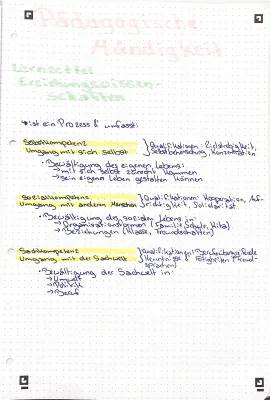 Pädagogische
Mündigkeit
Lernzettel
Erziehungswissen-
schaften
→ ist ein Prozess & umfasst:
Selbstkompetenz
Umgang mit sich selbst
Qualifikationen: Zielstrebigkeit,
Selbstbeherrschung, Konzentration
• Bewältigung des eigenen Lebens:
→ mit sich selbst zurecht kommen
→ sein eigenes Leben gestalten können
Sozialkompetenz
Umgang mit anderen Menschen
Qualifikationen: Kooperation, Auf-
richtigkeit, Solidarität
• Bewältigung des sozialen Lebens in:
→ Organisationsformen (Familie, Schule, Kita)
→ Beziehungen (Klasse, Freundschaften)
Sachkompetenz
Umgang mit der Sachwelt
Qualifikationen: Berufsbezogene
Kenntnisse & Fähigkeiten (Fremd-
sprachen)
• Bewältigung der Sachwelt in:
→ Umwelt
→ Politik
→ Beruf